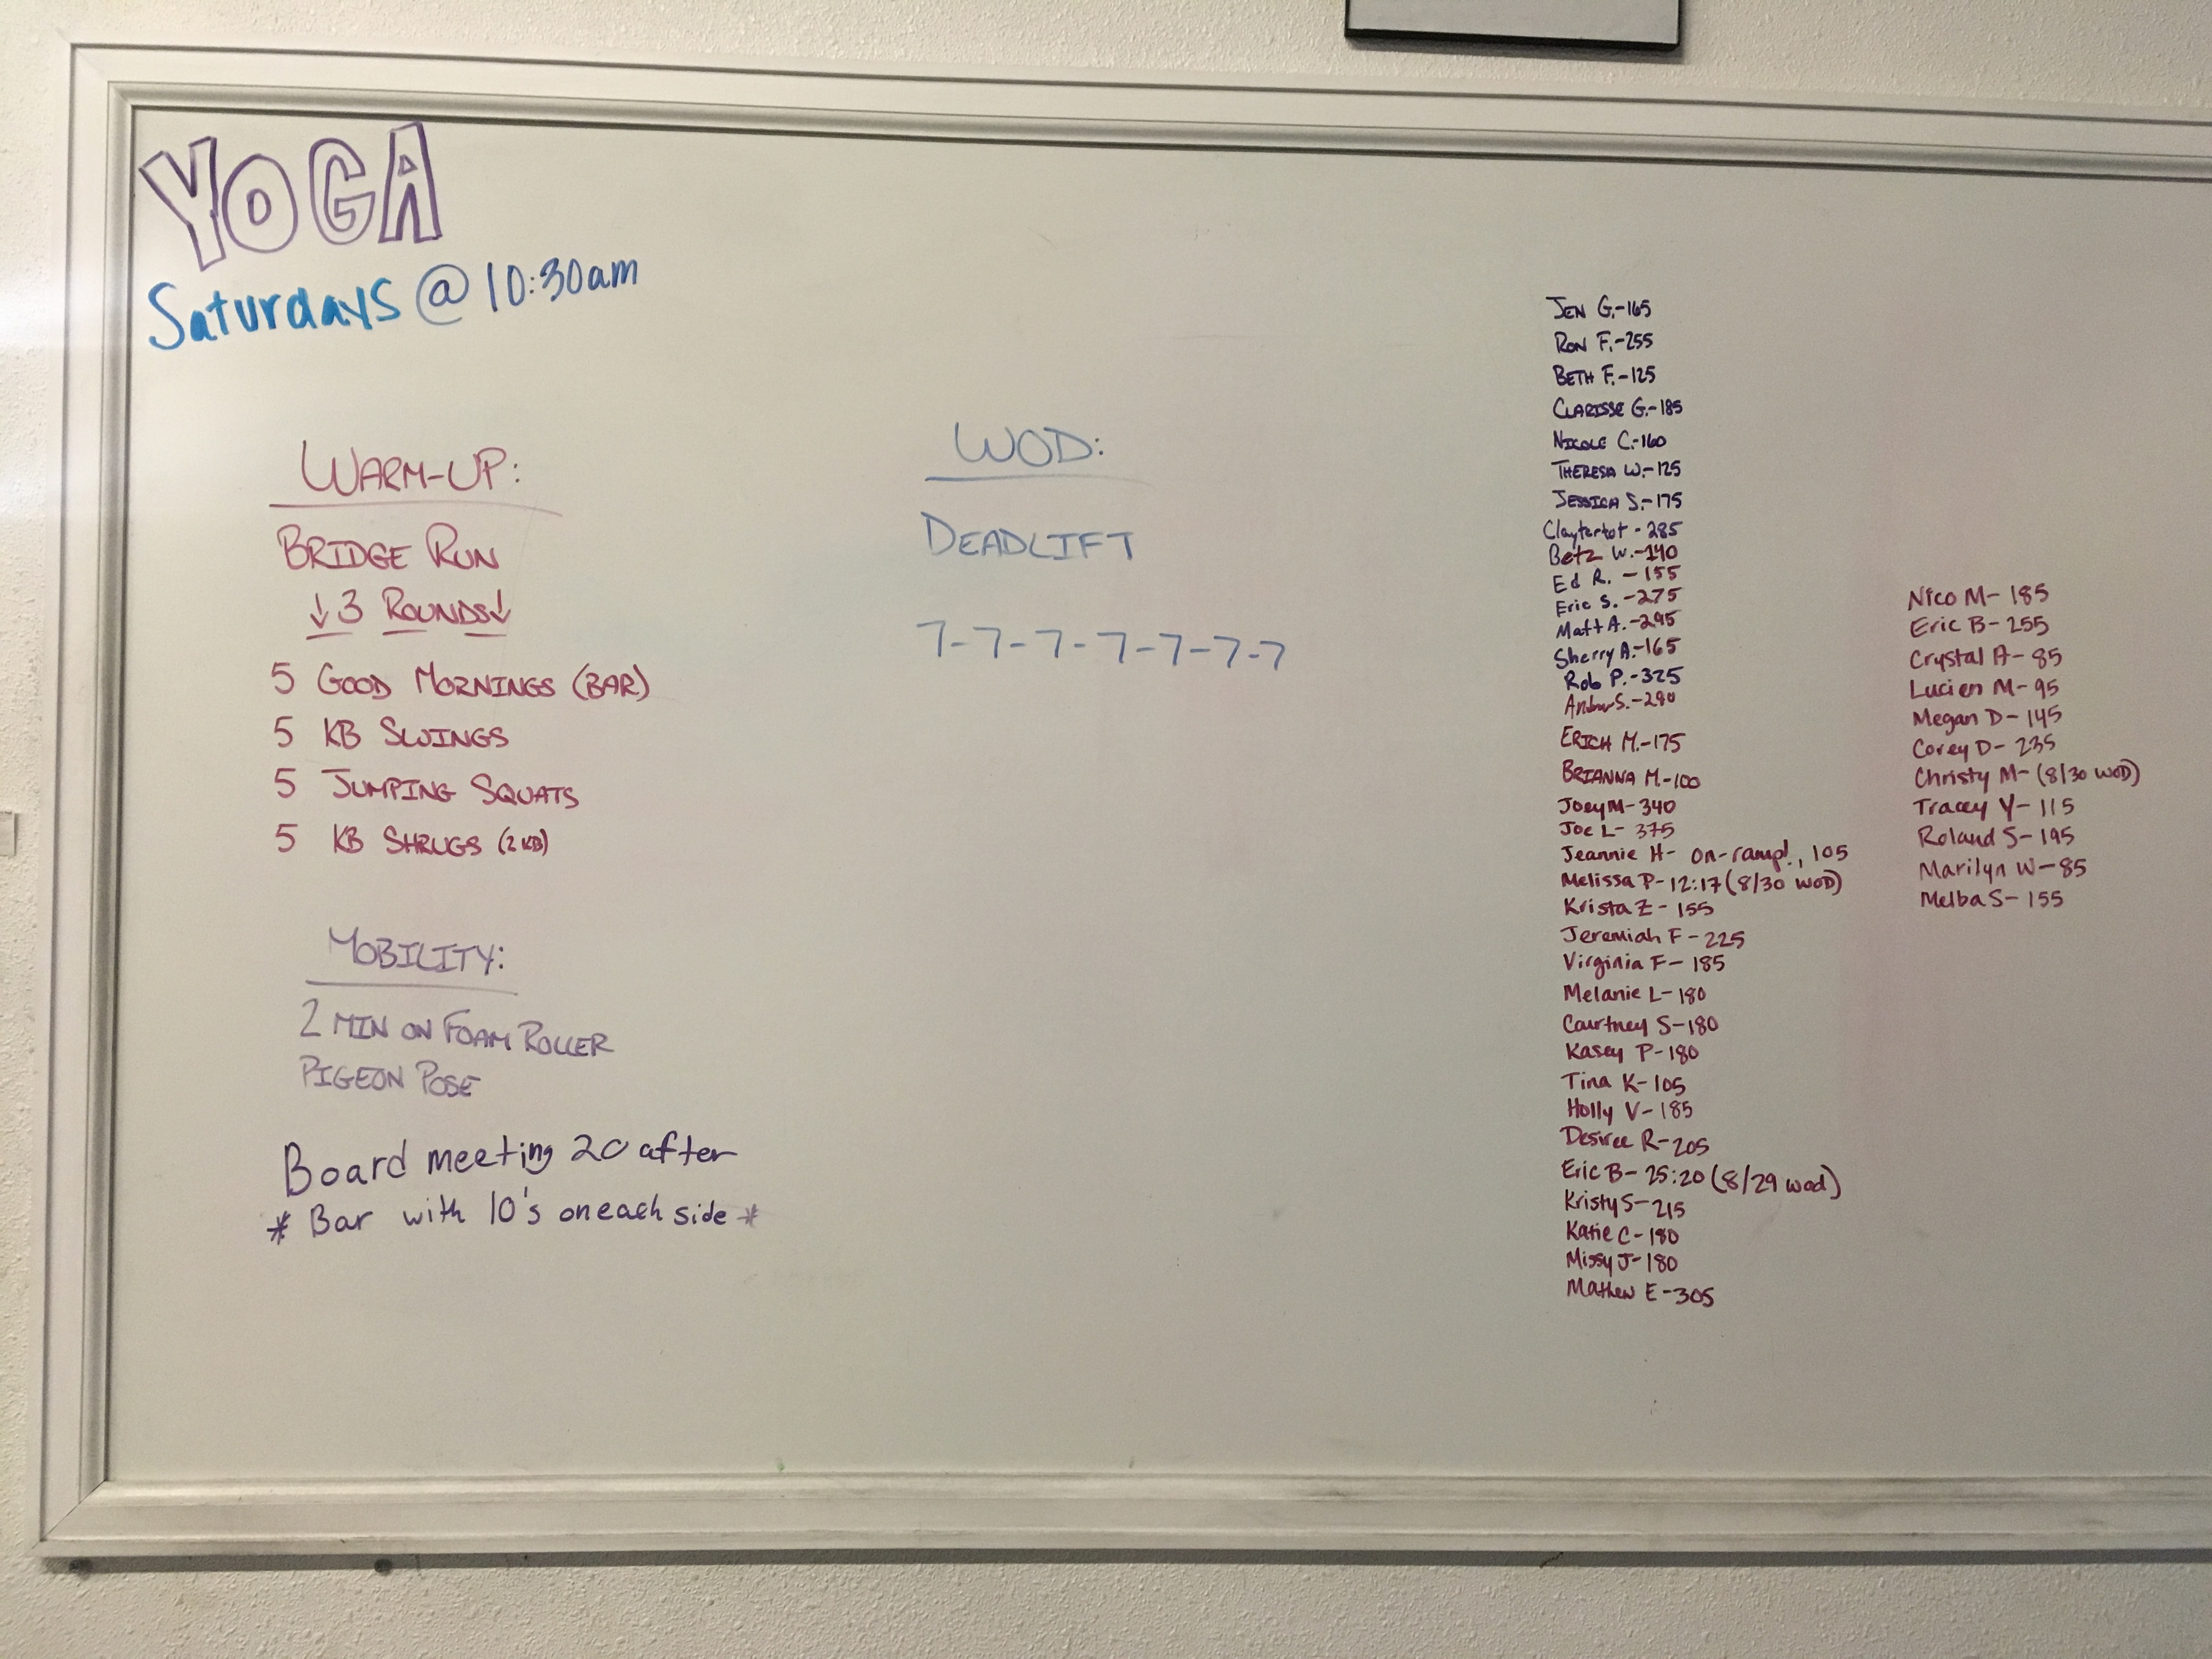 YOGA
Saturdays @ 10:30am
WARM-UP:
BRIDGE RUN
↓3 ROUNDS↓
5 GOOD MORNINGS (BAR)
5 KB SWINGS
5 JUMPING SQUATS
5 KB SHRUGS (2 KB)
MOBILITY:
2 MIN ON FOAM ROLLER
PIGEON POSE
Board meeting 20 after
* Bar with 10's on each side *
WOD:
DEADLIFT
7-7-7-7-7-7-7
JEN G.-165
RON F.-255
BETH F.-125
CLARISSE G.-185
NICOLE C.-160
THERESA W.-125
JESSICA S.-175
Claytertot - 285
Betz W.-140
Ed R. - 155
Eric S. -275
Matt A. -295
Sherry A.-165
Rob P.-325
S.-280
ERICH M.-175
BRIANNA M.-100
Joey M- 340
Joe L- 375
Jeannie H- on-ramp!, 105
Melissa P- 12:17 (8/30 WOD)
Krista Z - 155
Jeremiah F - 225
Virginia F - 185
Melanie L- 180
Courtney S-180
Kasey P-180
Tina K- 105
Holly V- 185
Desiree R-205
Eric B- 25:20 (8/29 wod)
Kristy S- 215
Katie C- 180
Missy J- 180
Mathew E -305
Nico M- 185
Eric B- 255
Crystal A- 85
Lucien M- 95
Megan D- 145
Corey D- 235
Christy M- (8/30 WOD)
Tracey Y- 115
Roland S- 195
Marilyn W- 85
Melba S- 155